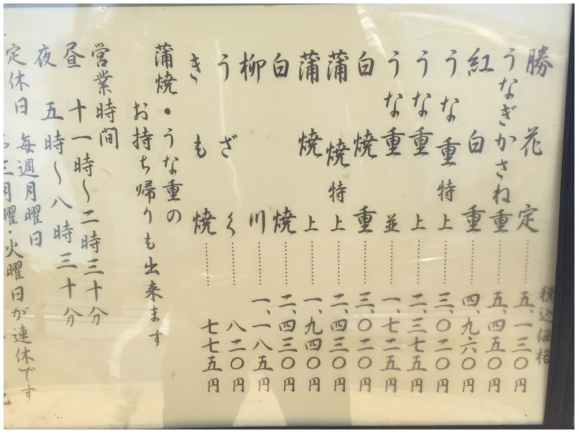 税込価格
勝花定………五、一三〇円
うなぎかさね重………五、四五〇円
紅白重………四、九六〇円
うな重特上………三、〇二〇円
うな重上………二、三七五円
うな重並………一、七二五円
白焼重………三、〇二〇円
蒲焼特上………二、四三〇円
蒲焼上………一、九四〇円
白焼………二、四三〇円
柳川………一、一八五円
うざく………八二〇円
きも焼………七七五円
蒲焼・うな重の
お持ち帰りも出来ます
営業時間
昼 十一時〜二時三十分
夜 五時〜八時三十分
定休日 毎週月曜日
三月曜・火曜日が連休です